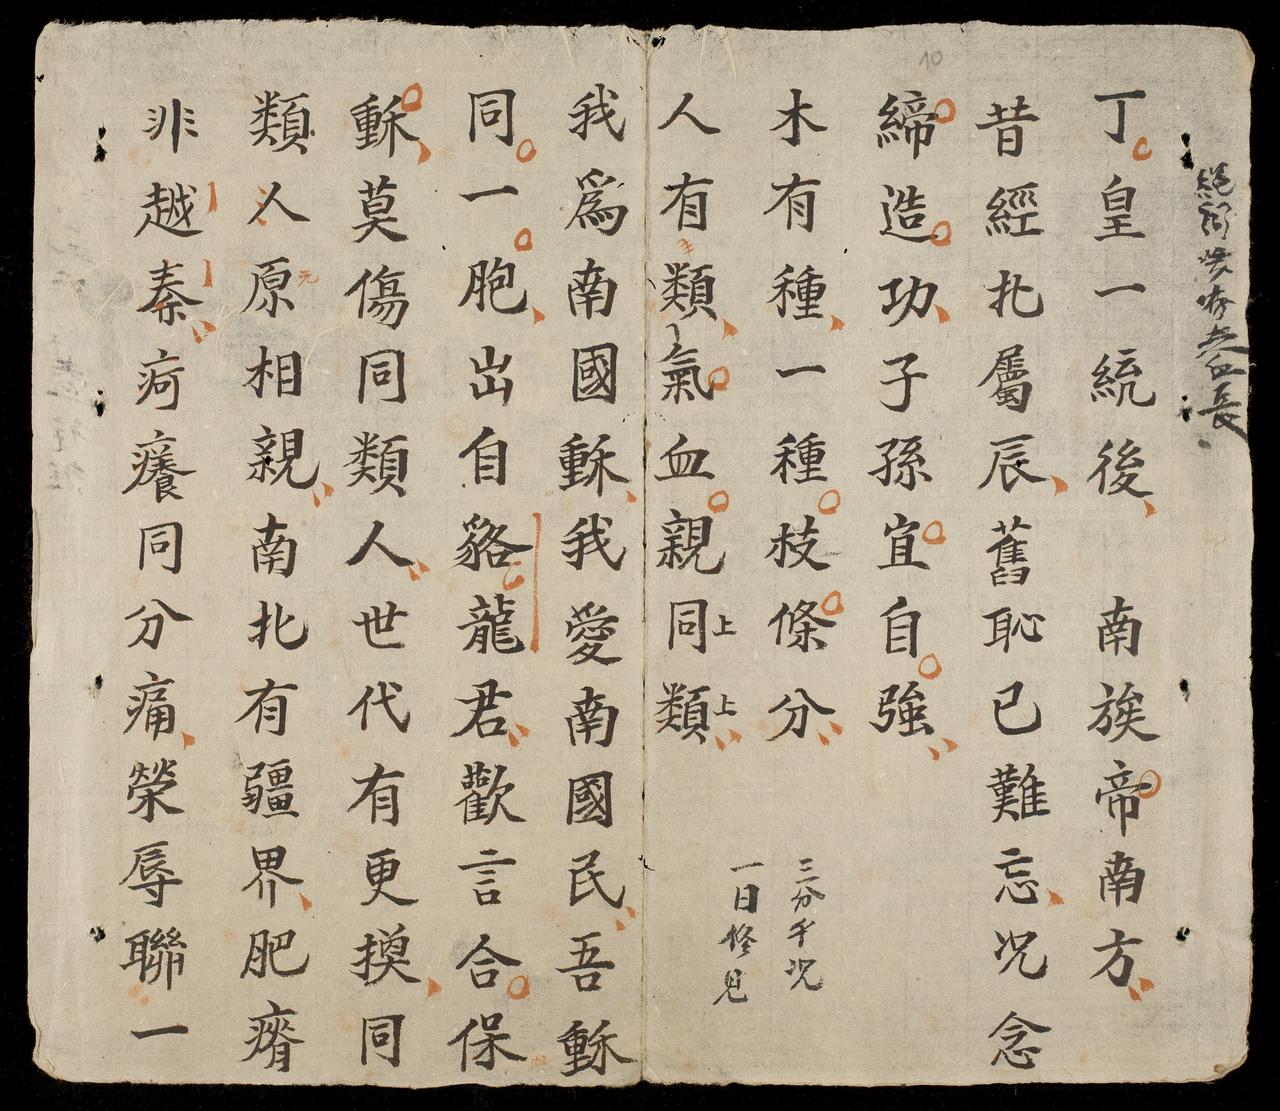 丁皇一統後 南族帝南方
昔經北屬辰舊恥已難忘况念
締造功子孫宜自強
木有種一種枝條分
人有類氣血親同類
三分千况
一日修見
我爲南國穌我愛南國民吾穌
同一胞出自貉龍君歡言合保
穌莫傷同類人世代有更摸同
類人原相親南北有疆界肥瘠
非越秦疴癢同分痛榮辱聯一